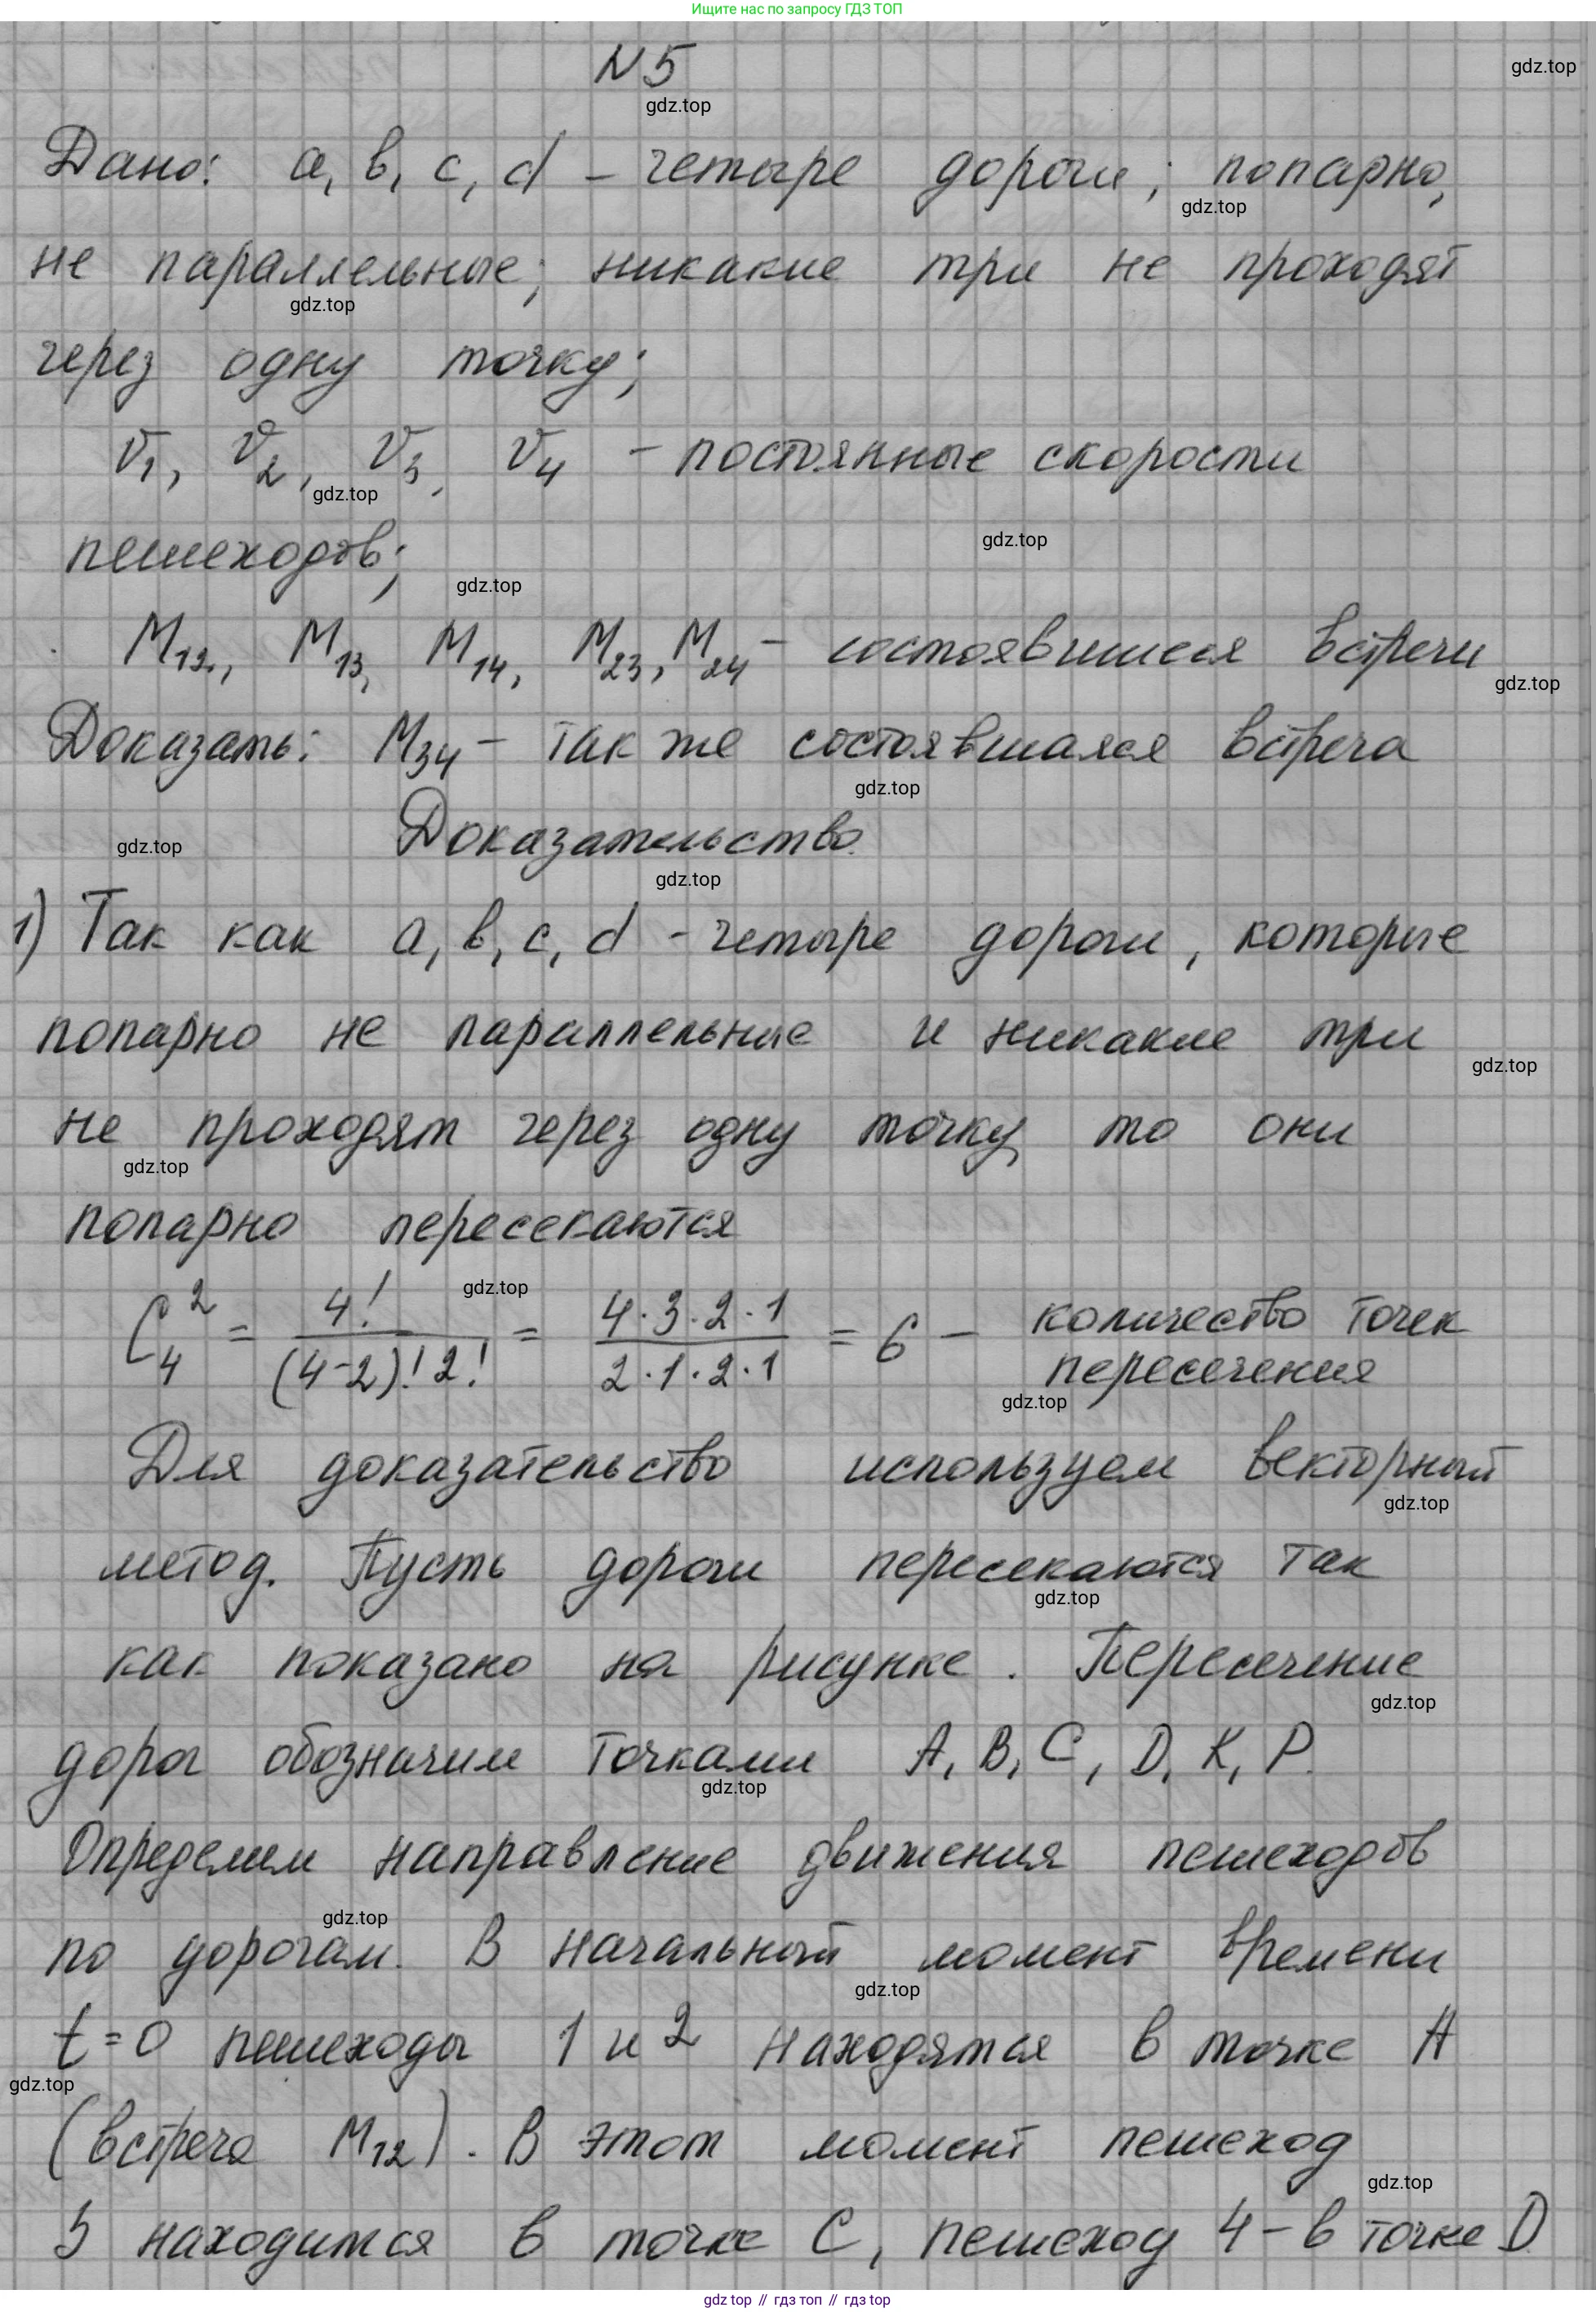 Ищите нас по запросу ГДЗ ТОП
N5
gdz.top
gdz.top
Дано: a, b, c, d – четыре дороги; попарно,
gdz.top
не параллельные; никакие три не проходят
gdz.top
через одну точку;
v1, v2, v3, v4 – постоянные скорости
gdz.top
пешеходов;
gdz.top
gdz.top
M12, M13, M14, M23, M24 – состоявшиеся встречи
gdz.top
Доказать: M34 – так же состоявшаяся встреча
gdz.top
Доказательство.
gdz.top
gdz.top
1) Так как a, b, c, d – четыре дороги, которые
попарно не параллельные и никакие три
gdz.top
не проходят через одну точку, то они
gdz.top
попарно пересекаются
gdz.top
C₄² = 4!/((4-2)!2!) = (4·3·2·1)/(2·1·2·1) = 6 – количество точек
пересечения
gdz.top
Для доказательство используем векторный
gdz.top
метод. Пусть дороги пересекаются так
gdz.top
как показано на рисунке. Пересечение
gdz.top
дорог обозначим точками A, B, C, D, K, P.
gdz.top
Определим направление движения пешеходов
gdz.top
по дорогам. В начальный момент времени
gdz.top
t=0 пешеходы 1 и 2 находятся в точке A
gdz.top
(встреча M12). В этот момент пешеход
gdz.top
3 находится в точке C, пешеход 4 – в точке D
gdz.top // гдз топ // гдз top